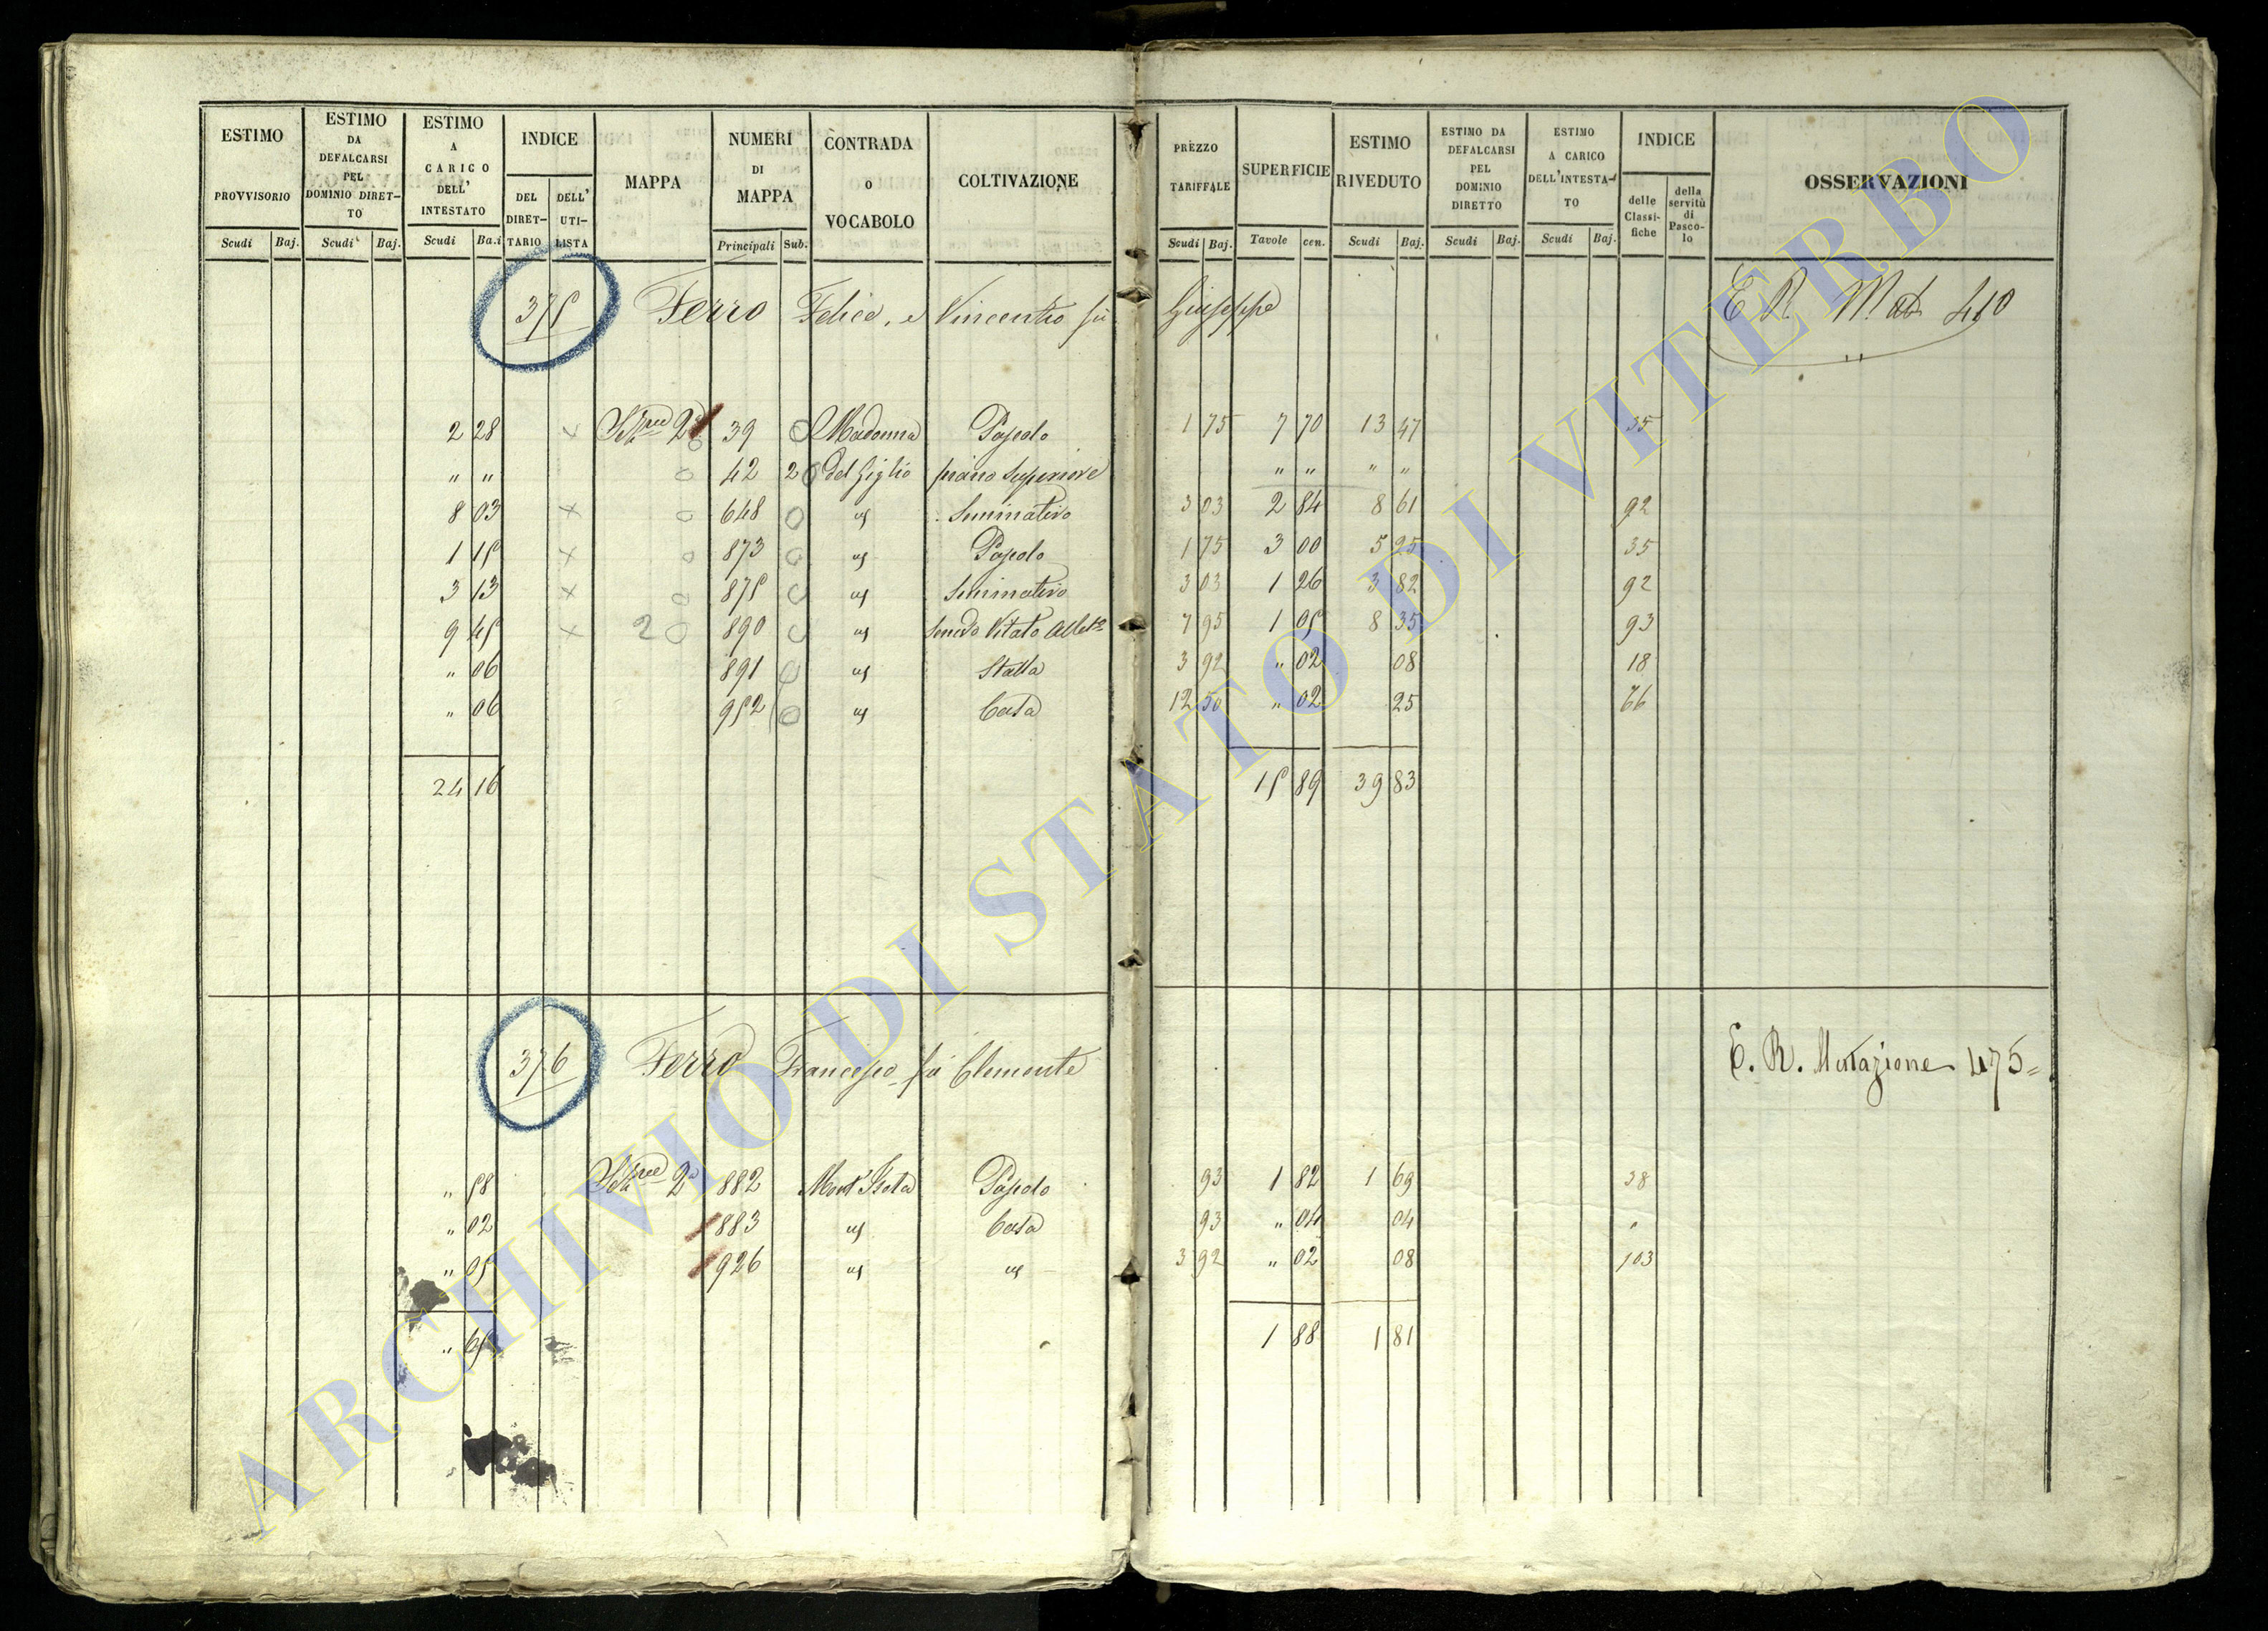 ESTIMO PROVVISORIO Scudi Baj.
ESTIMO DA DEFALCARSI PEL DOMINIO DIRETTO Scudi Baj.
ESTIMO A CARICO DELL' INTESTATO Scudi Ba.i
INDICE DEL DIRETTARIO DELL' UTILISTA
MAPPA
NUMERI DI MAPPA Principali Sub.
CONTRADA O VOCABOLO
COLTIVAZIONE
PREZZO TARIFFALE Scudi Baj.
SUPERFICIE Tavole cen.
ESTIMO RIVEDUTO Scudi Baj.
ESTIMO DA DEFALCARSI PEL DOMINIO DIRETTO Scudi Baj.
ESTIMO A CARICO DELL'INTESTATO Scudi Baj.
INDICE delle Classifiche della servitù di Pascolo
OSSERVAZIONI
375 Ferro Felice, e Vincentio fu Giuseppe E R Mat 410
2 28 × Sez 2a 39 Madonna Pascolo 1 75 7 70 13 47 35
" " 42 2 del Giglio piano Superiore " " " "
8 03 × 648 us Seminativo 3 03 2 84 8 61 92
1 15 × 873 us Pascolo 1 75 3 00 5 25 35
3 13 × 875 us Seminativo 3 03 1 26 3 82 92
9 45 × 2 890 us Vitato 7 95 1 05 8 35 93
" 06 891 us Stalla 3 92 " 02 08 18
" 06 952 us Casa 12 50 " 02 25 66
24 16 15 89 39 83
376 Ferro Francesco fu Clemente E. R. Mutazione 475=
" 58 Sez 2a 882 Pascolo 93 1 82 1 69 38
" 02 883 us Casa 93 " 04 04 "
" 05 926 us us 3 92 " 02 08 103
" 65 1 88 1 81
ARCHIVIO DI STATO DI VITERBO